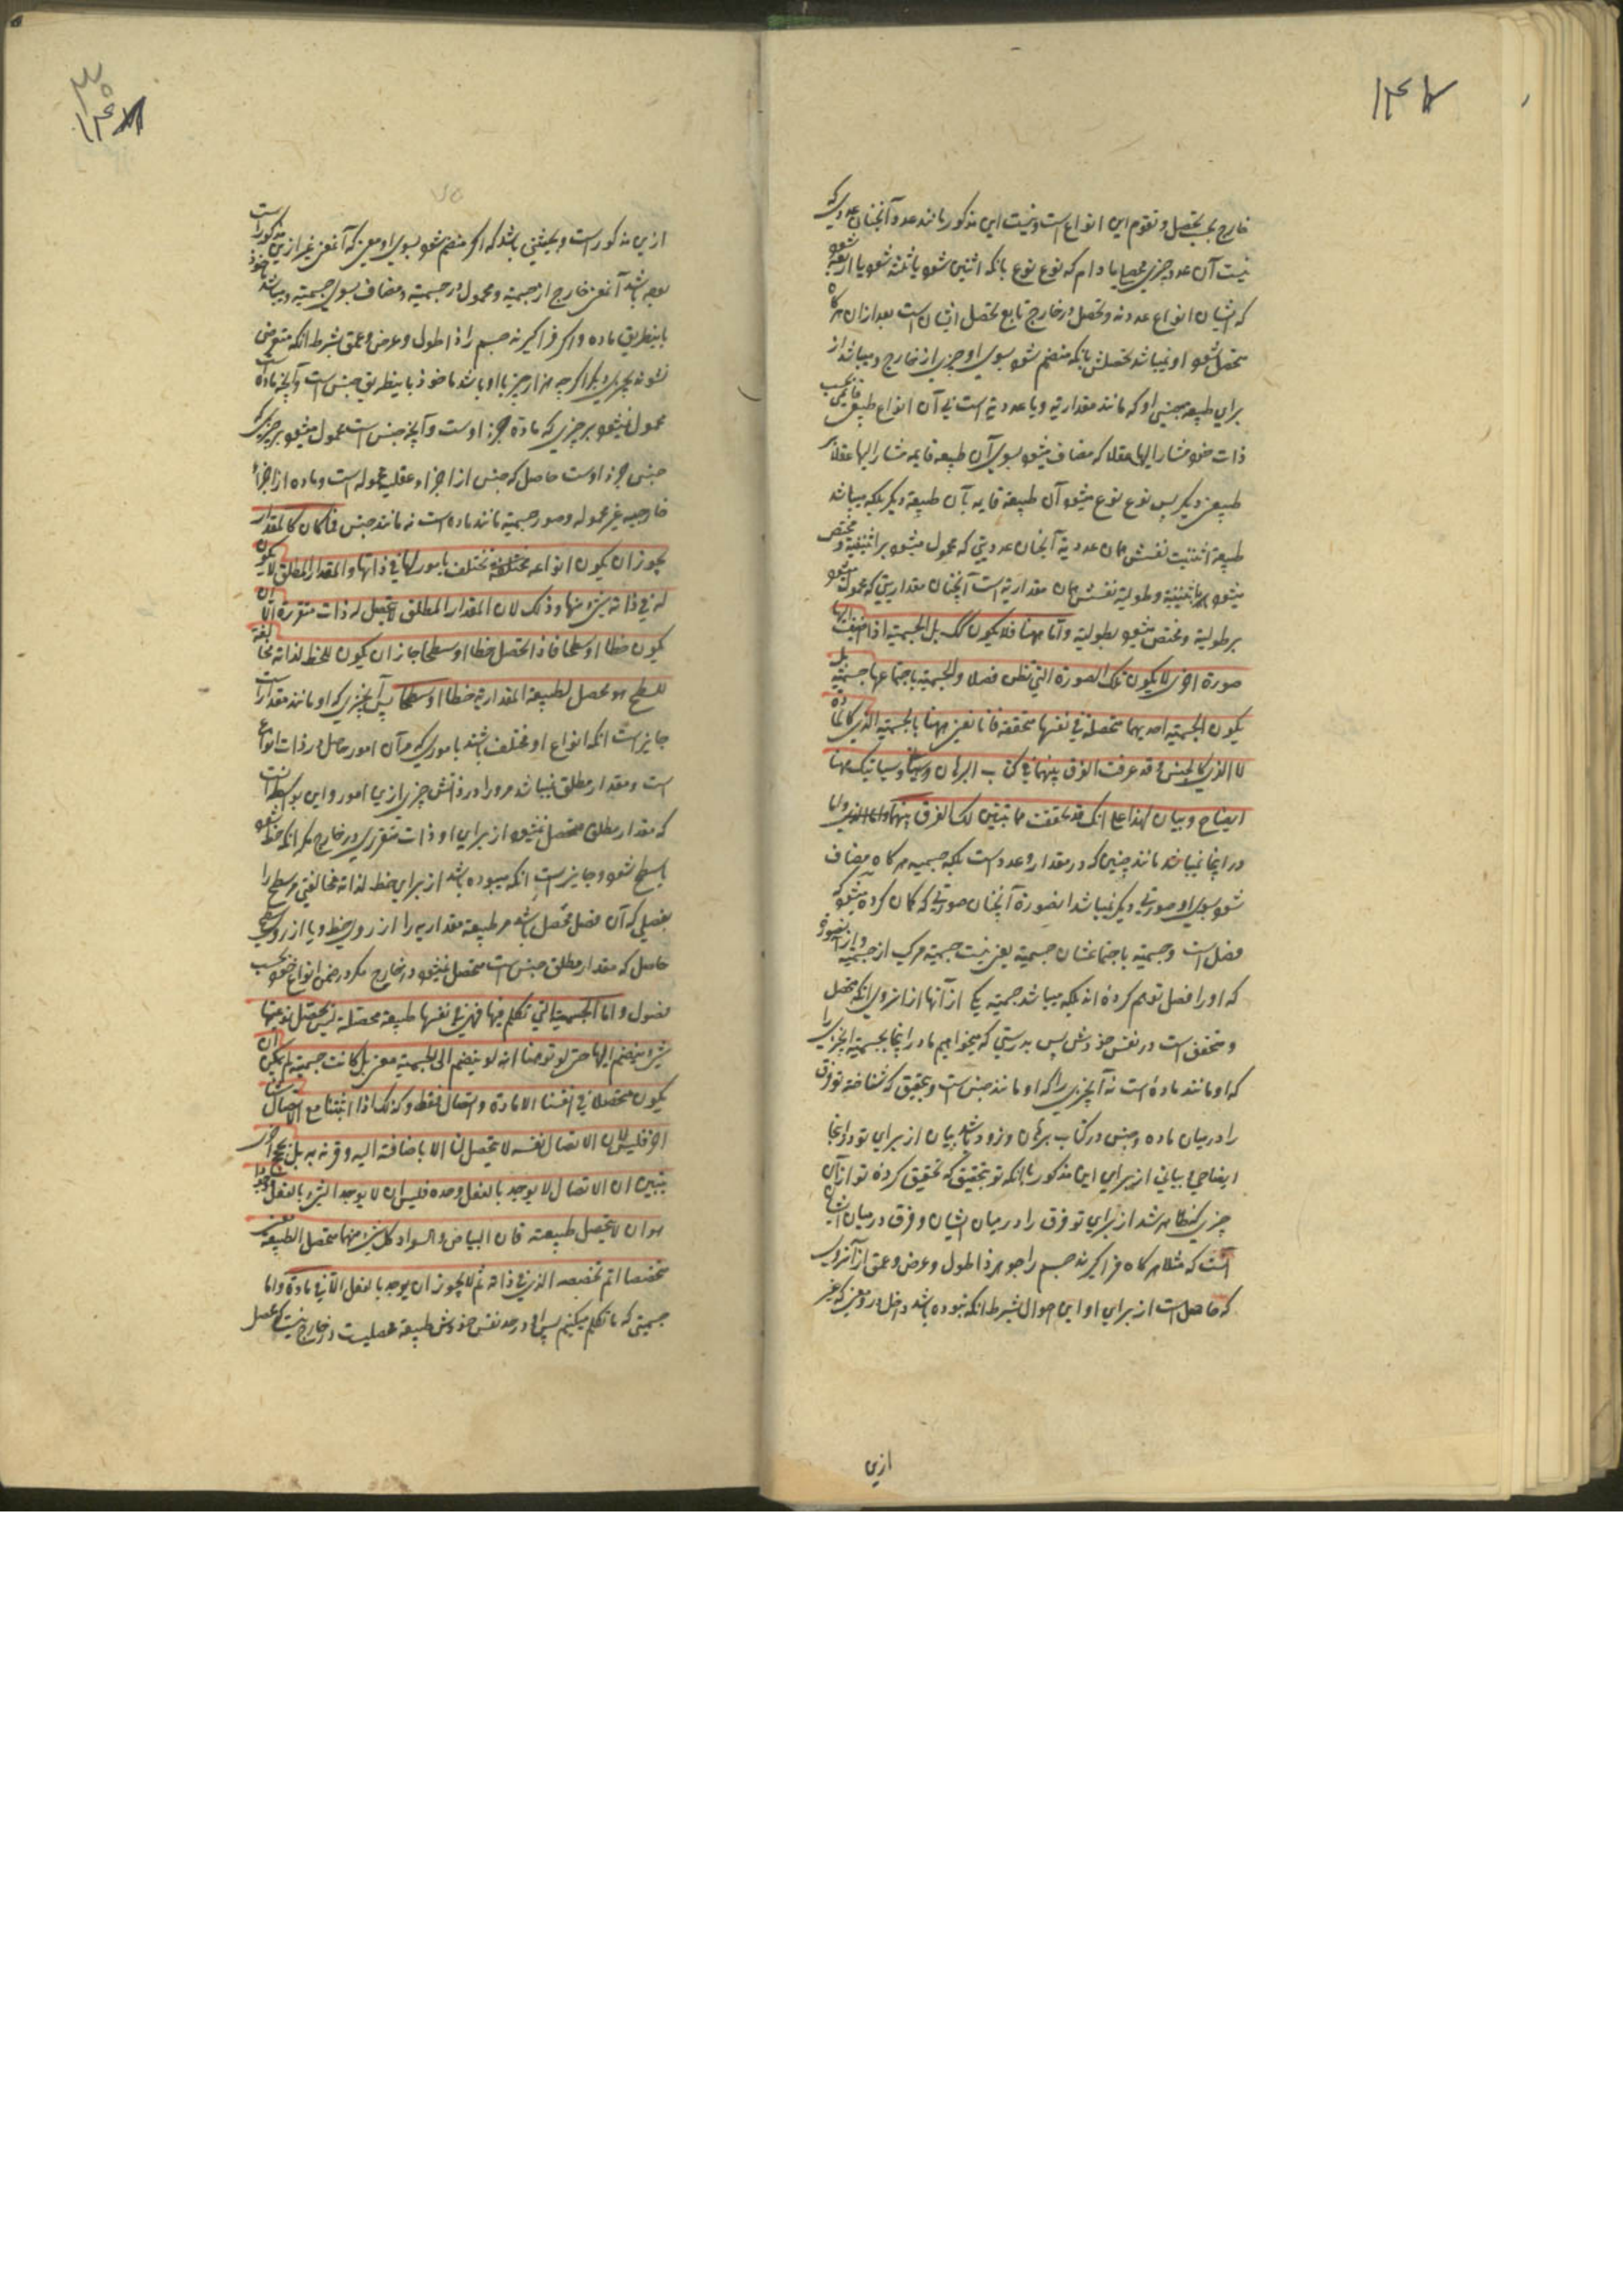 خارج بحسب تحصل و تقوم این انواع است و نیست این مذکور مانند عدد آنچنان عددی که
نیست آن عدد چیزی محصل مادام که نوع نوع بانکه اثنین شود یا ثلثه شود یا اربعه شود
که ایشان انواع عددند و تحصل در خارج تابع تحصل ایشان است بعد از آن هرگاه
متحصل شود او نمیباشد تحصلش بانکه منضم شود بسوی او چیزی از خارج و میباشد از
برای طبیعه جنسی او که مانند مقداریة و یا عددیة است بی آن انواع طبیعة قایمی بحسب
ذات خود مشار الیها عقلا که مضاف میشود بسوی آن طبیعه قایمه مشار الیها عقلا
طبیعتی دیگر پس نوع نوع میشود آن طبیعة قایمه بآن طبیعة دیگر بلکه میباشد
طبیعة اثنینیت نفسش همان عددیة آنچنان عددیتی که محمول میشود بر اثنینیة و مختص
میشود باثنینیة و طولیة نفسش همان مقداریة است آنچنان مقداریتی که محمول میشود
بر طولیة و مختص میشود بطولیة و اما ههنا فلا یکون کک بل الجسمیة اذا اضیف الیها
صورة اخری لا یکون تلک الصورة التی تظن فصلا و الجسمیة باجتماعها جسمیة بل
یکون الجسمیة احدیهما متحصلة فی نفسها متحققة فانا نعنی ههنا بالجسمیة التی کالمادة
لا التی کالجنس و قد عرفت الفرق بینهما فی کتاب البرهان و سیأتیک ههنا
ایضاح و بیان لهذا علی انک قد تحققت مما تبین لک الفرق بینهما
در اینجا نمیباشد مانند چنین که در مقدار و عدد است بلکه جسمیه هرگاه مضاف
شود بسوی او صورتی دیگر نمیباشد انصورة آنچنان صورتی که کمان کرده میشود که
فصل است و جسمیة باجتماعشان جسمیة یعنی نیست جسمیة مرکب از جسمیة و از انصورة
که او را فصل توهم کرده اند بلکه میباشد جسمیة یکی از آنها از انروی انکه متحصل
و متحقق است در نفس خودش پس بدرستی که میخواهیم ما در اینجا بجسمیة آنچیزی را
که او مانند ماده است نه آنچیزی را که او مانند جنس است و بتحقیق که شناخته تو فرق
را در میان ماده و جنس در کتاب برهان و زود باشد بیان از برای تو در اینجا
ایضاحی و بیانی از برای این مذکور بانکه تو بتحقیق که تحقیق کرده تو از آن
چیزی که ظاهر شد از برای تو فرق را در میان ایشان و فرق در میان ایشان
آنست که مثلا هرگاه فراگیرند جسم را جوهر ذا طول و عرض و عمق از آنروی
که حاصل است از برای او این احوال بشرط انکه نبوده باشد داخل در و معنی که غیر
ازین
ازین مذکور است و بحیثیتی باشد که اگر منضم شود بسوی او معنی که آنمعنی غیر ازین مذکور است
بوده باشد آنمعنی خارج از جسمیة و محمول در جسمیة و مضاف بسوی جسمیة و میباشد ماخوذ
باینطریق ماده و اگر فراگیرند جسم را ذا طول و عرض و عمق بشرط انکه متعرض
نشوند بچیزی دیگر اگرچه هزار چیز با او باشد ماخوذ باینطریق جنس است و آنچه ماده است
محمول نمیشود بر چیزی که ماده جزء اوست و آنچه جنس است محمول میشود بر چیزی که
جنس جزء اوست حاصل که جنس از اجزاء عقلیه محموله است و ماده از اجزاء
خارجیه غیر محموله و صور جسمیة مانند ماده است نه مانند جنس فکان کالمقدار
یجوز ان یکون انواعه مختلفة تختلف بامور لها فی ذاتها و المقدار المطلق لا یکون
له فی ذاته شیء منها و ذلک لان المقدار المطلق لا یحصل له ذات متقررة الا ان
یکون خطا او سطحا فاذا تحصل خطا او سطحا جاز ان یکون للخط لذاته مخالفة
للسطح هو محصل لطبیعة المقداریة خطا او سطحا پس آنچیزی که او مانند مقدار است
جایز است انکه انواع او مختلف باشند باموری که مر آن امور حاصل در ذات انواع
است و مقدار مطلق نمیباشد مر او را در ذاتش چیزی ازین امور و این بواسطه آنست
که مقدار مطلق متحصل نمیشود از برای او ذات متقرری در خارج مگر انکه خط شود
یا سطح شود و جایز است انکه میبوده باشد از برای خط لذاته مخالفتی مر سطح را
بفصلی که آن فصل محصل باشد مر طبیعة مقداریه را از روی خط و یا از روی سطح
حاصل که مقدار مطلق جنس است متحصل نمیشود در خارج مگر در ضمن انواع خود بحسب
فصول و اما الجسمیة التی نتکلم فیها فهی فی نفسها طبیعة محصلة لیس تحصل نوعیتها
بشیء ینضم الیها حتی لو توهمنا انه لو ینضم الی الجسمیة معنی بل کانت جسمیة لم یمکن ان
یکون متحصلا فی انفسنا الا مادة و اتصال فقط و کذلک اذا اثبتنا مع الاتصال شیئا
اخر فلیس لان الاتصال نفسه لا یتحصل لنا الا باضافة الیه و قرنه به بل بحجج اخر
یتبین ان الاتصال لا یوجد بالفعل وحده فلیس ان لا یوجد الشیء بالفعل موجودا
هو ان لا یتحصل طبیعته فان البیاض و السواد کل شیء منهما متحصل الطبیعة معنی
متخصصا اتم تخصصه الذی فی ذاته ثم لا یجوز ان یوجد بالفعل الا فی مادة و اما
جسمیتی که ما تکلم میکنیم پس او در حد نفس خودش طبیعة محصلیست در خارج نیست که محصل